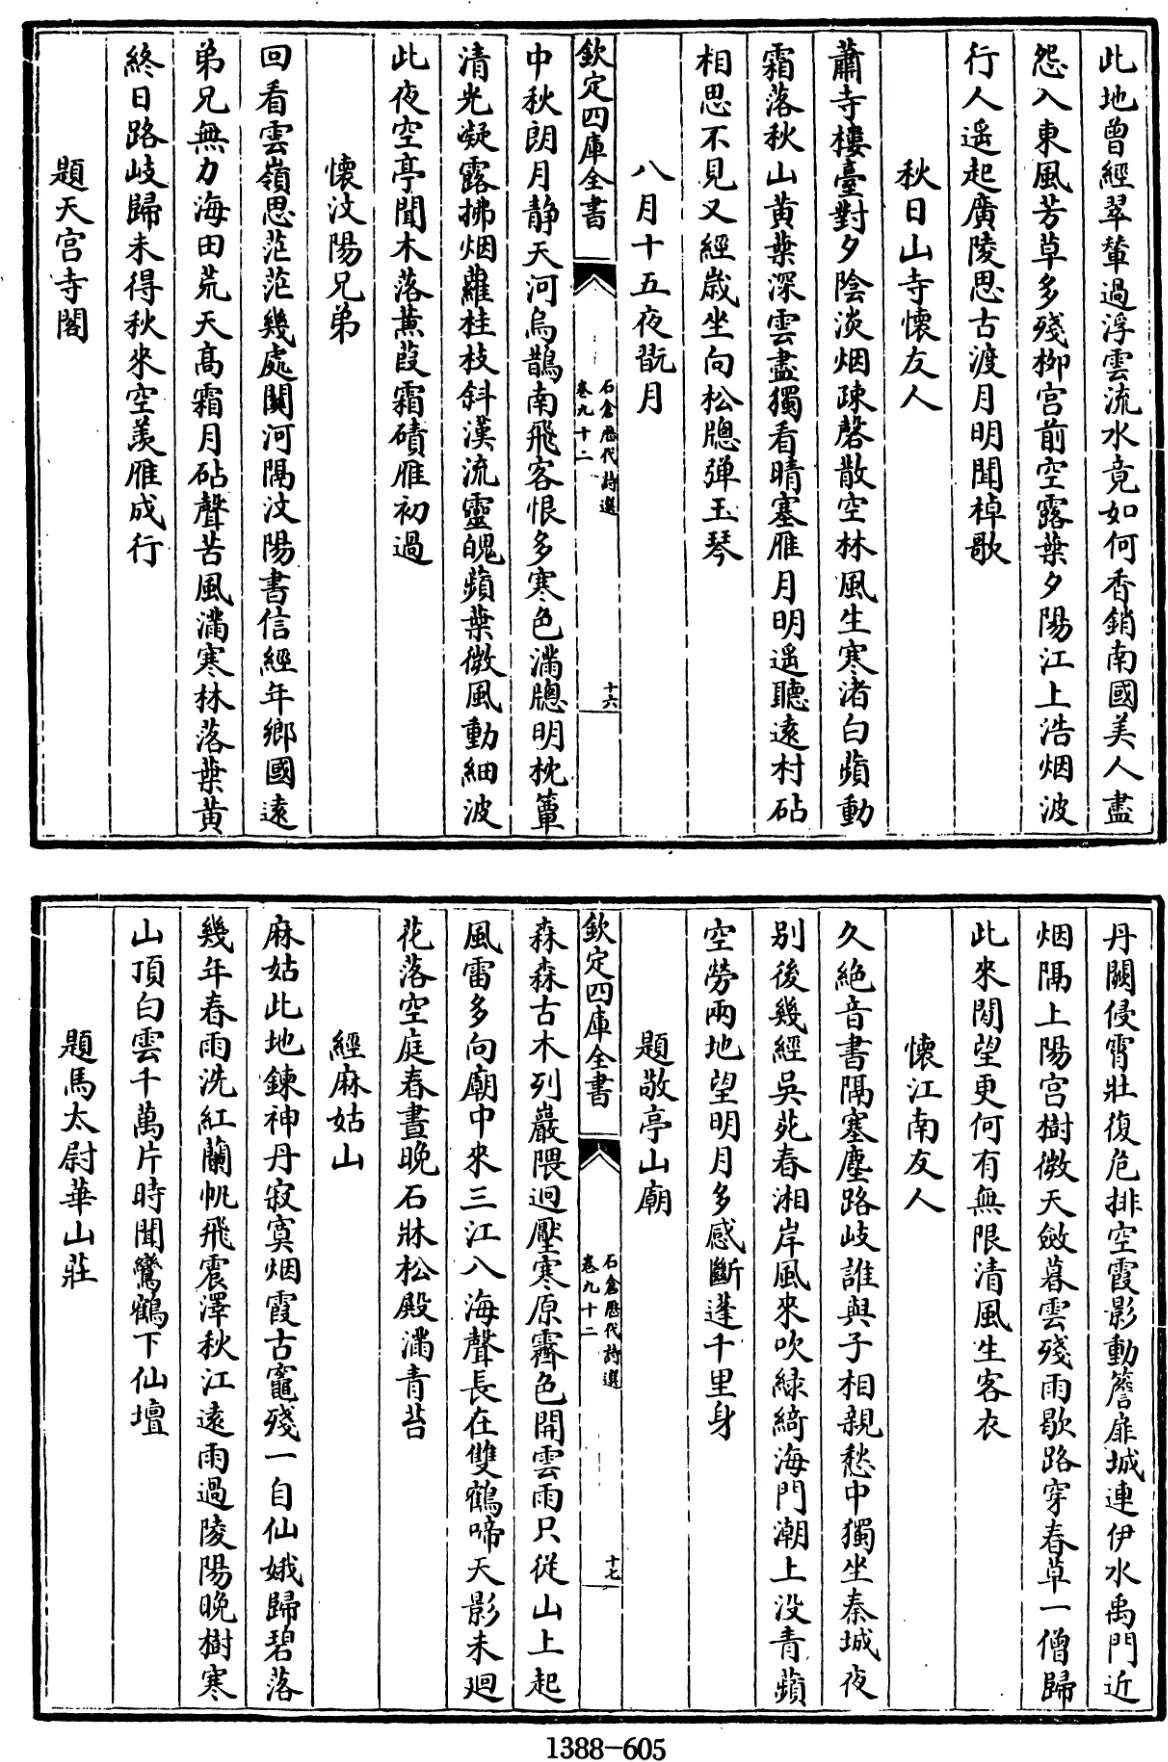 此地曾經翠輦過浮雲流水竟如何香銷南國美人盡
怨入東風芳草多殘柳宫前空露葉夕陽江上浩烟波
行人遥起廣陵思古渡月明聞棹歌
秋日山寺懷友人
蕭寺樓臺對夕陰淡烟疎磬散空林風生寒渚白蘋動
霜落秋山黄葉深雲盡獨看晴塞雁月明遥聽逺村砧
相思不見又經歳坐向松牕彈玉琴
八月十五夜翫月
中秋朗月静天河烏鵲南飛客恨多寒色滿牕明枕簟
清光凝露拂烟蘿桂枝斜漢流靈魄蘋葉微風動細波
此夜空亭聞木落蒹葭霜磧雁初過
懷汶陽兄弟
回看雲嶺思茫茫幾處闗河隔汶陽書信經年鄉國逺
弟兄無力海田荒天髙霜月砧聲苦風滿寒林落葉黄
終日路岐歸未得秋來空羡雁成行
題天宫寺閣
欽定四庫全書
石倉歴代詩選
卷九十二
十六
丹闕侵霄壯復危排空霞影動簷扉城連伊水禹門近
烟隔上陽宫樹微天斂暮雲殘雨歇路穿春草一僧歸
此來閒望更何有無限清風生客衣
懷江南友人
久絶音書隔塞塵路岐誰與子相親愁中獨坐秦城夜
别後幾經吳苑春湘岸風來吹緑綺海門潮上没青蘋
空勞兩地望明月多感斷蓬千里身
題敬亭山廟
森森古木列巖隈迥壓寒原霽色開雲雨只從山上起
風雷多向廟中來三江八海聲長在雙鶴啼天影未廻
花落空庭春晝晩石牀松殿滿青苔
經麻姑山
麻姑此地鍊神丹寂寞烟霞古竈殘一自仙娥歸碧落
幾年春雨洗紅蘭帆飛震澤秋江逺雨過陵陽晩樹寒
山頂白雲千萬片時聞鸞鶴下仙壇
題馬太尉華山莊
欽定四庫全書
石倉歴代詩選
卷九十二
十七
1388-605